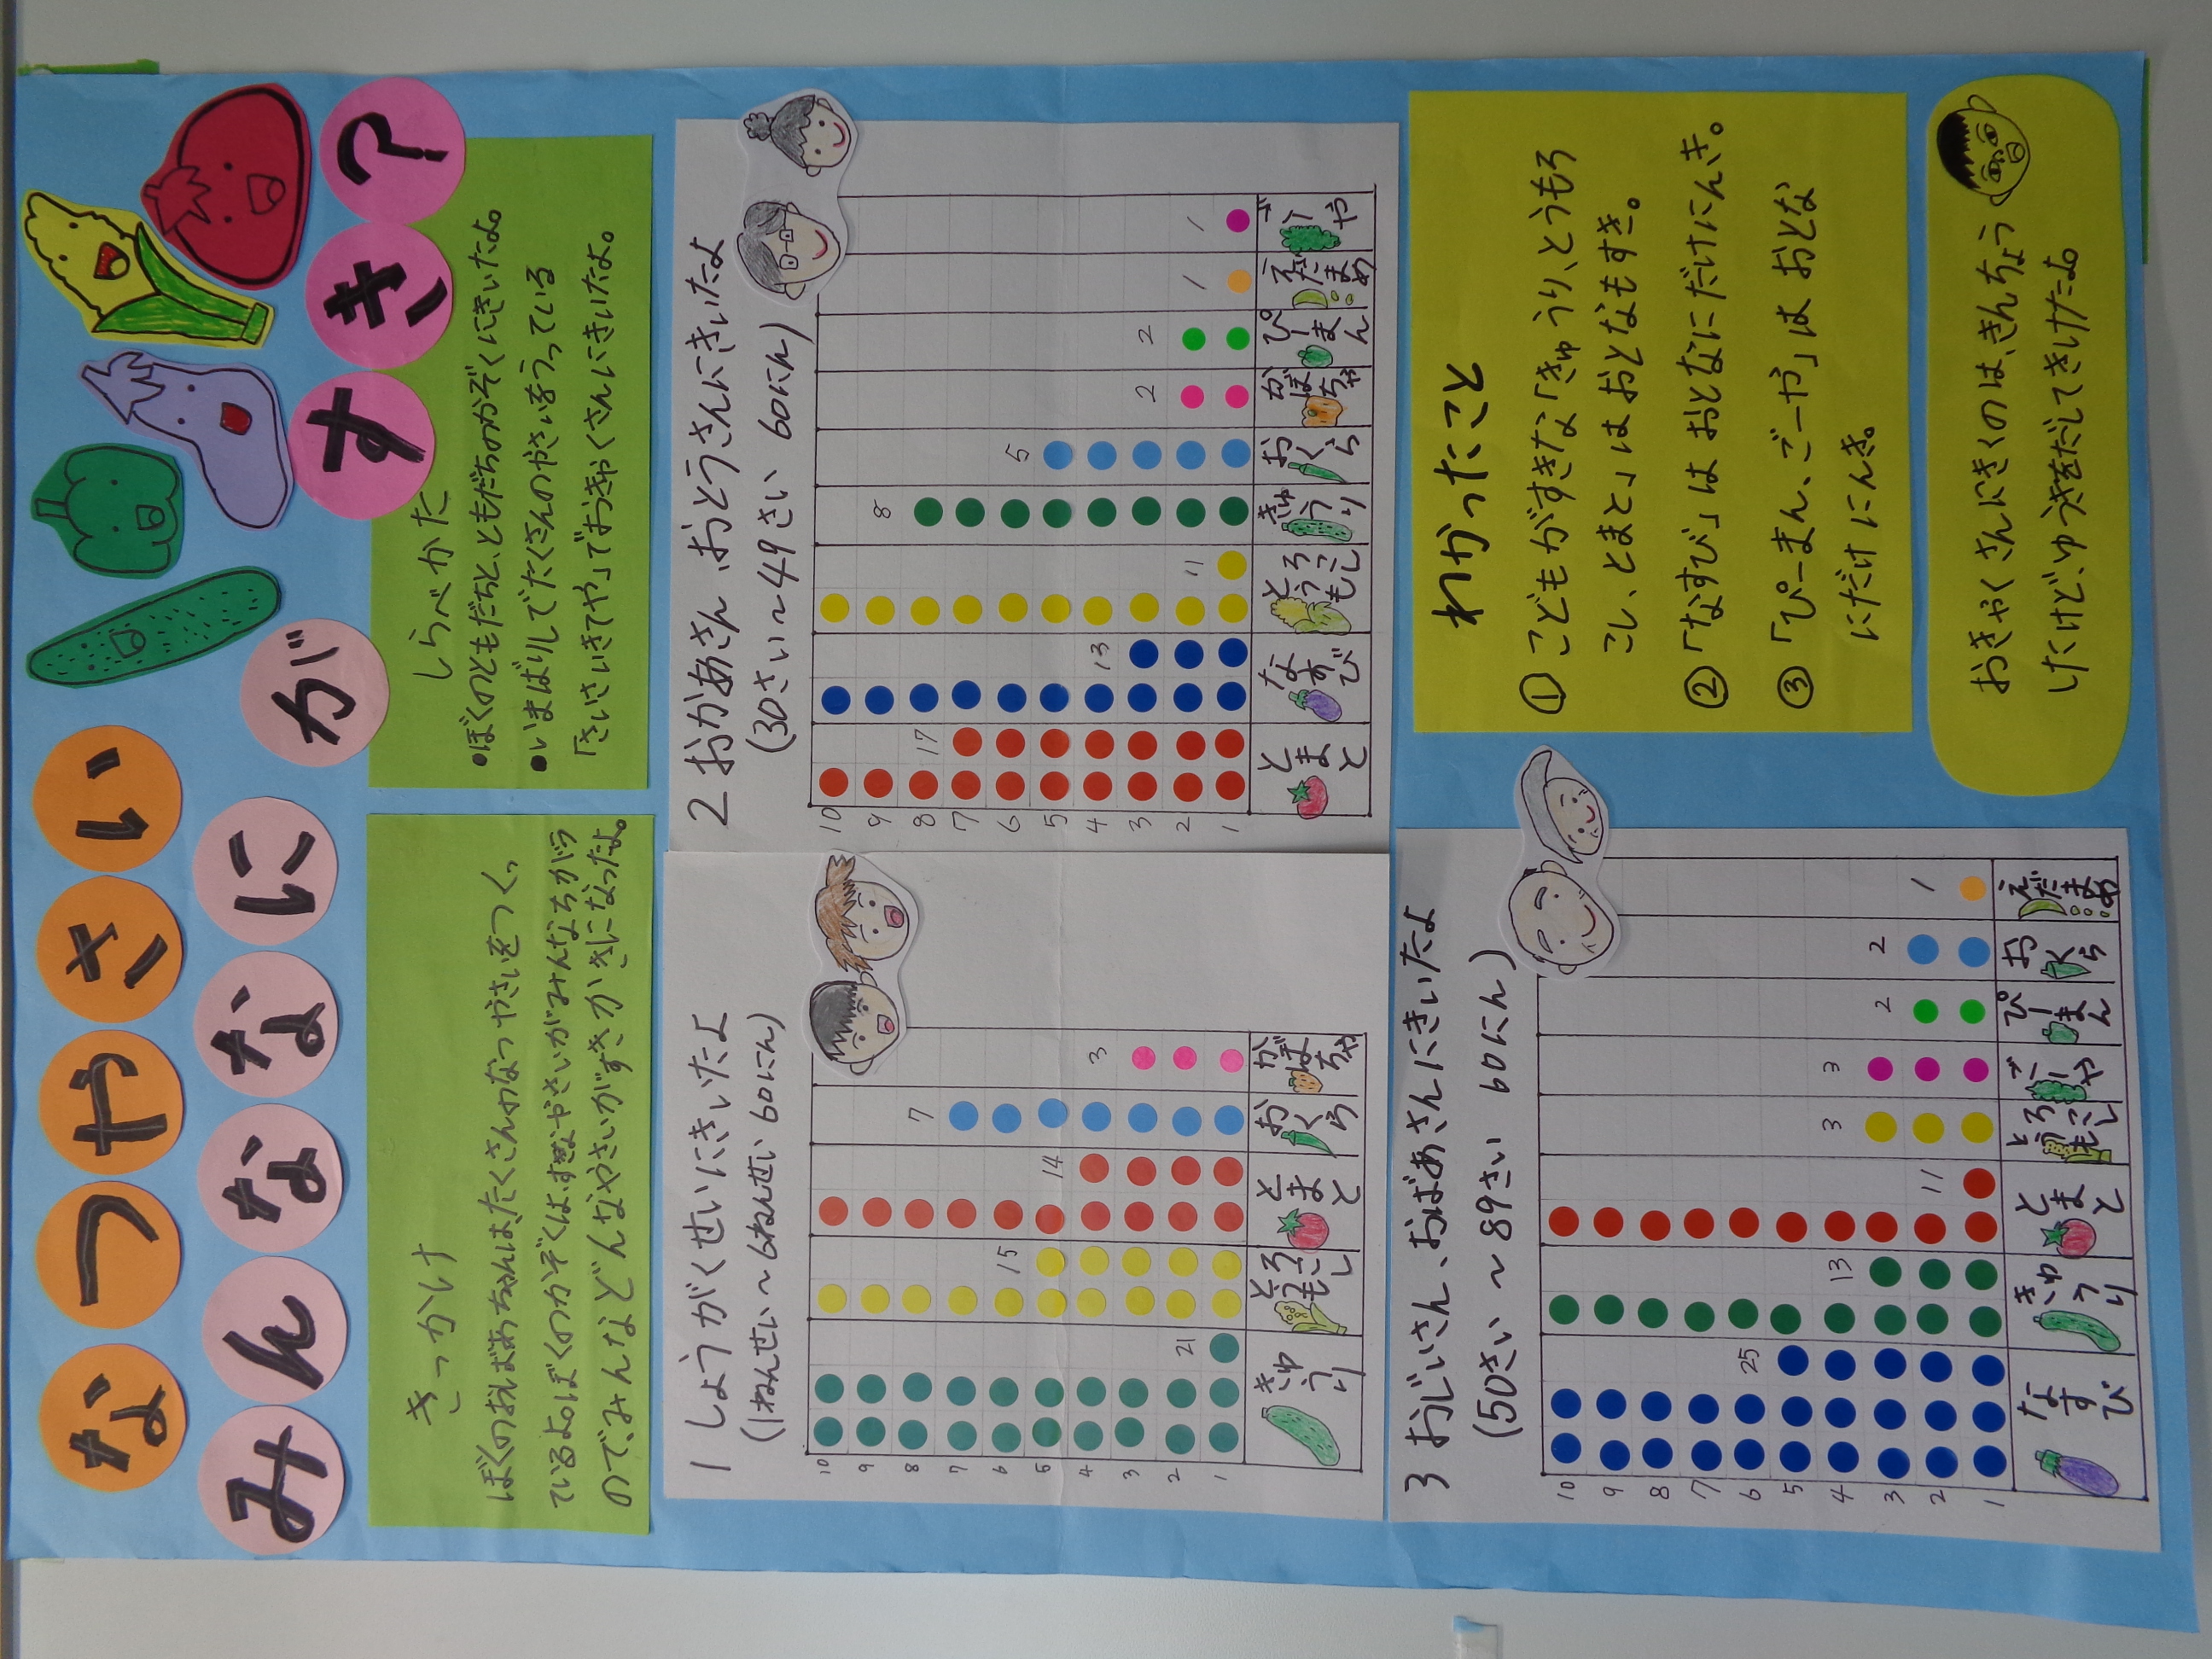 なつやさい
みんななにが
すき?
きっかけ
ぼくのおばあちゃんは、たくさんのなつやさいをつくっ
ているよ。ぼくのかぞくはすきなやさいがみんなちがう
ので、みんなどんなやさいがすきかきになったよ。
しらべかた
●ぼくのともだちと、ともだちのかぞくにきいたよ。
●いまばりしでたくさんのやさいをうっている
「さいさいきてや」でおきゃくさんにきいたよ。
1 しょうがくせいにきいたよ
(1ねんせい〜6ねんせい 60にん)
10
9
8
7
6
5
4
3
2
1
21
15
14
7
3
きゅうり
とうもろこし
とまと
おくら
かぼちゃ
2 おかあさん、おとうさんにきいたよ
(30さい〜49さい 60にん)
10
9
8
7
6
5
4
3
2
1
17
13
11
8
5
2
2
1
1
とまと
なすび
とうもろこし
きゅうり
おくら
かぼちゃ
ぴーまん
えだまめ
ごーや
3 おじいさん、おばあさんにきいたよ
(50さい〜89さい 60にん)
10
9
8
7
6
5
4
3
2
1
25
13
11
3
3
2
2
1
なすび
きゅうり
とまと
とうもろこし
ごーや
ぴーまん
おくら
えだまめ
わかったこと
①こどもがすきな「きゅうり、とうもろ
こし、とまと」はおとなもすき。
②「なすび」はおとなにだけにんき。
③「ぴーまん、ごーや」はおとな
にだけにんき。
おきゃくさんにきくのは、きんちょう
したけど、ゆうきをだしてきけたよ。